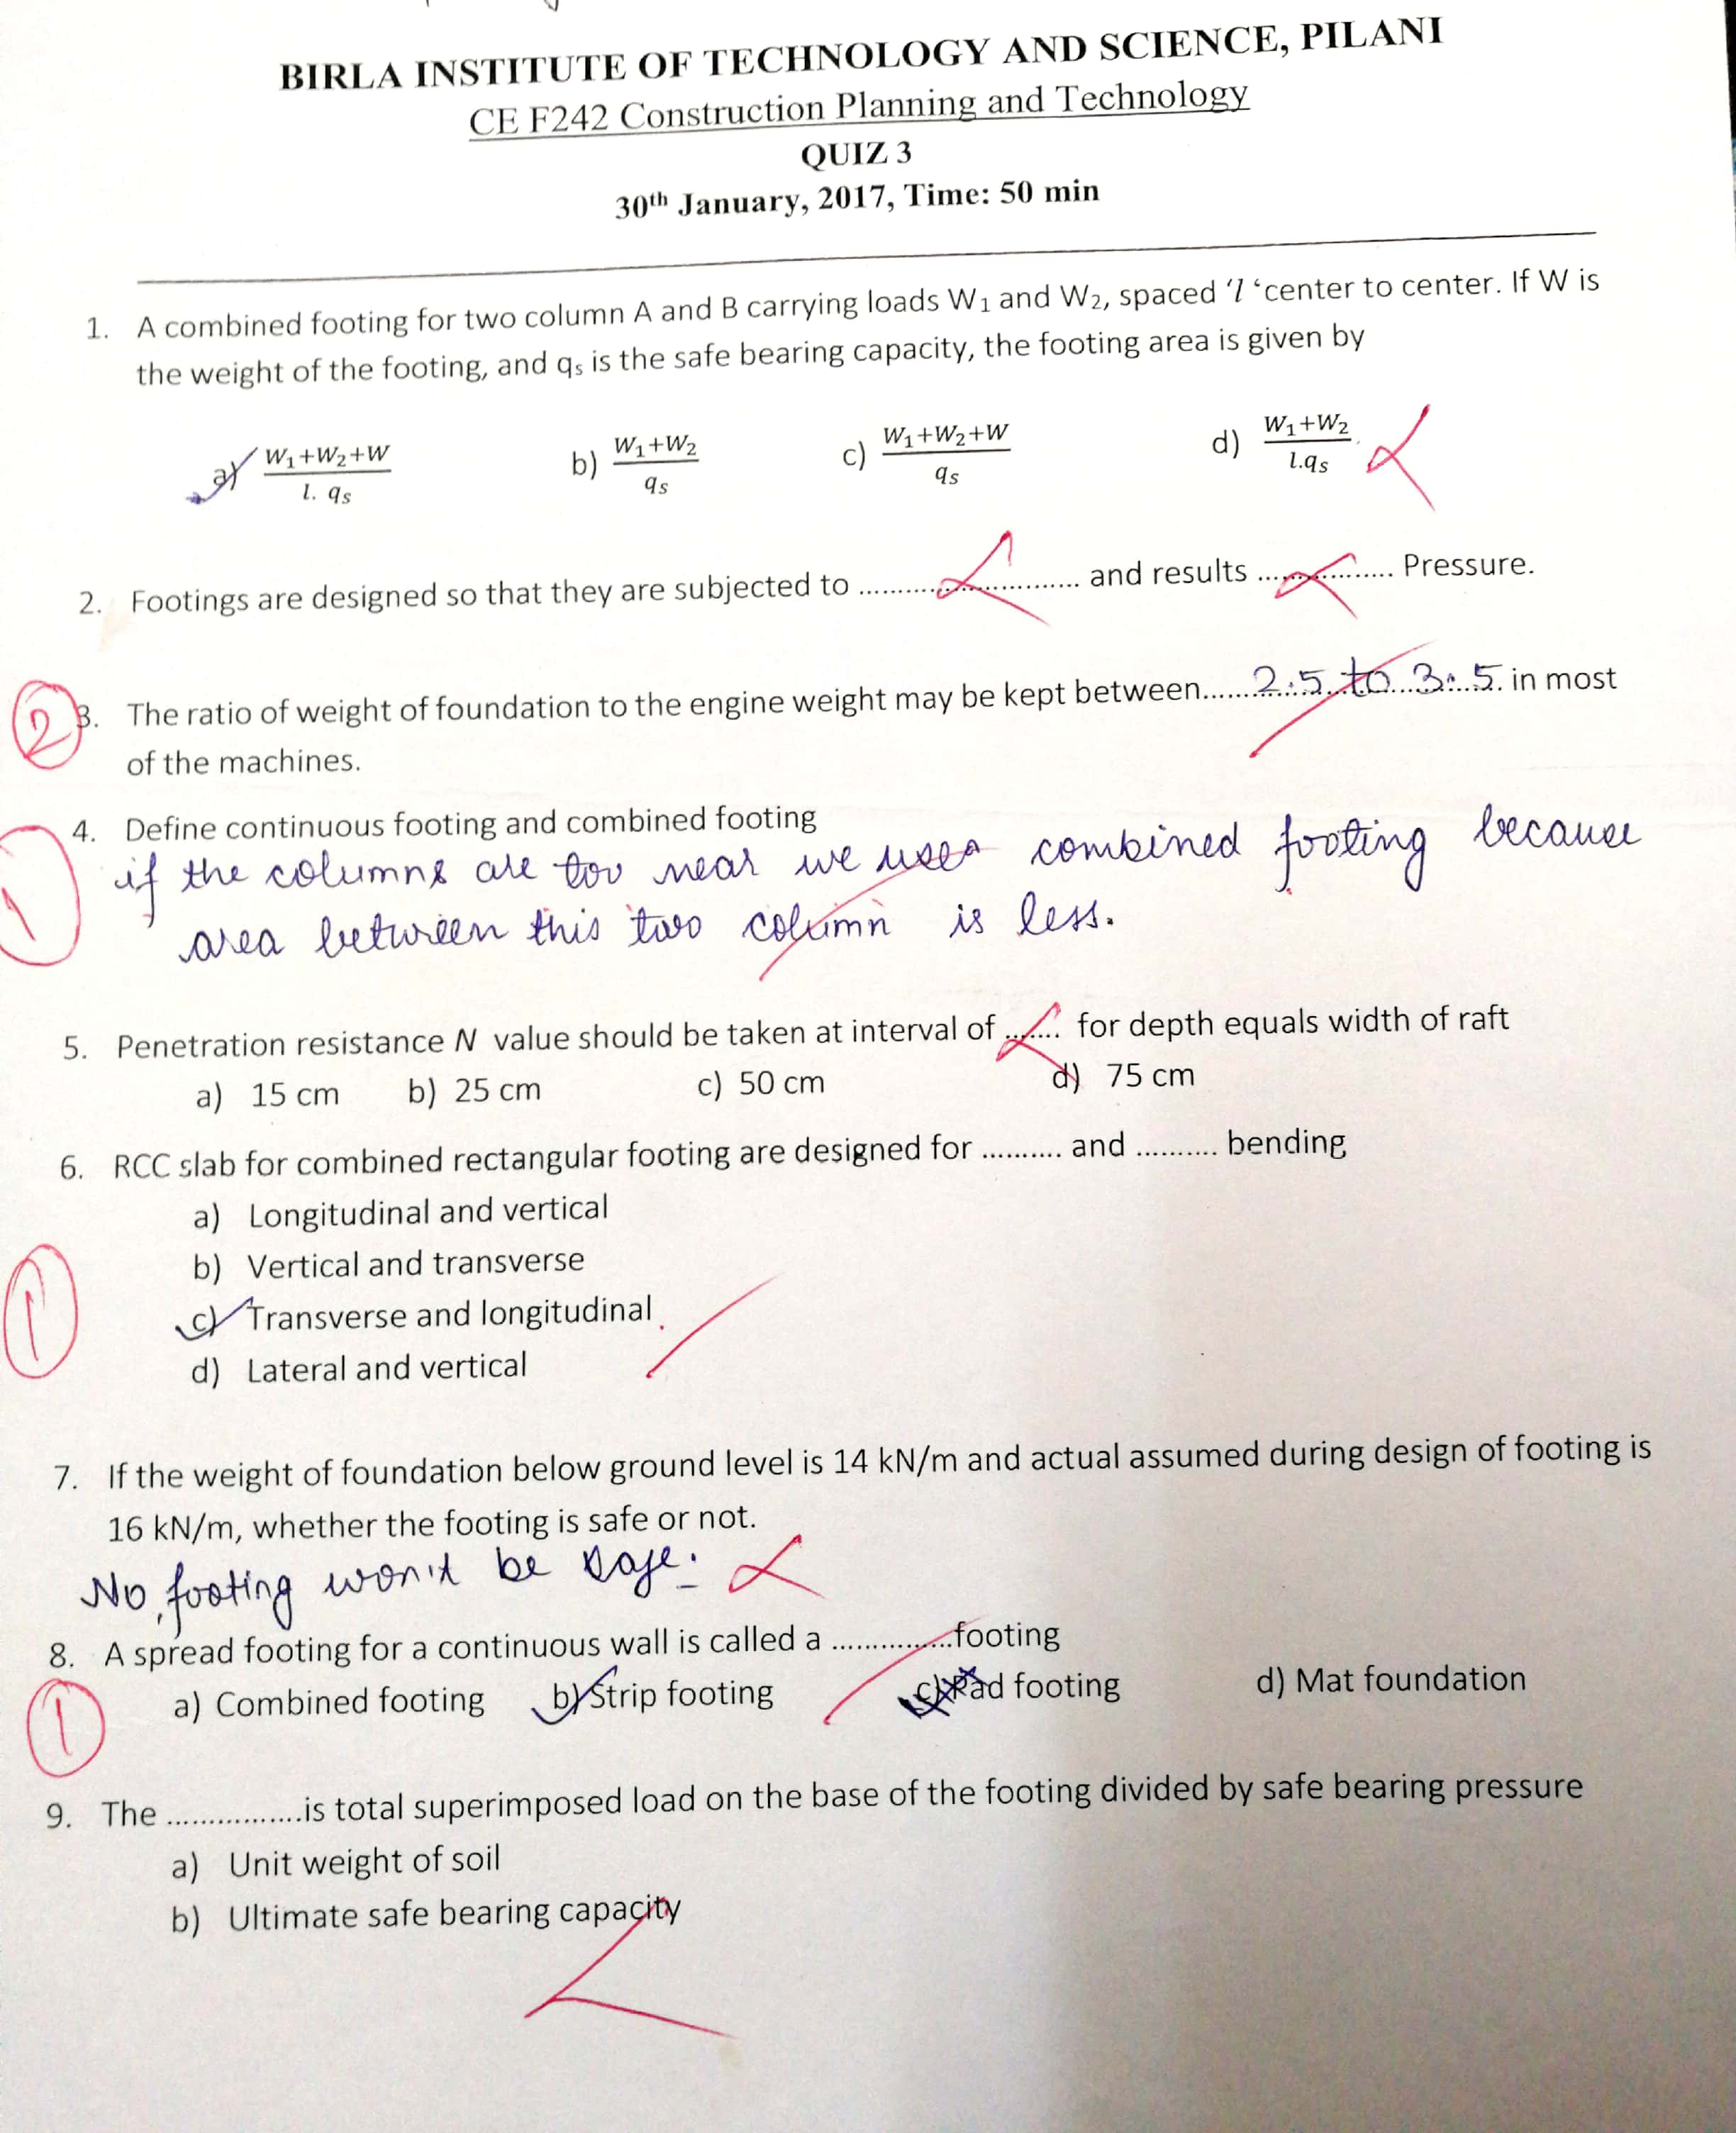 BIRLA INSTITUTE OF TECHNOLOGY AND SCIENCE, PILANI
CE F242 Construction Planning and Technology
QUIZ 3
30th January, 2017, Time: 50 min
1. A combined footing for two column A and B carrying loads W₁ and W₂, spaced 'l 'center to center. If W is
the weight of the footing, and qₛ is the safe bearing capacity, the footing area is given by
a) (W₁+W₂+W)/(l. qₛ) b) (W₁+W₂)/qₛ c) (W₁+W₂+W)/qₛ d) (W₁+W₂)/(l.qₛ)
2. Footings are designed so that they are subjected to ........................ and results ............... Pressure.
3. The ratio of weight of foundation to the engine weight may be kept between......2.5 to 3.5. in most
of the machines.
2
4. Define continuous footing and combined footing
if the columns are too near we uses combined footing because
area between this two column is less.
1
5. Penetration resistance N value should be taken at interval of ....... for depth equals width of raft
a) 15 cm b) 25 cm c) 50 cm d) 75 cm
6. RCC slab for combined rectangular footing are designed for .......... and .......... bending
a) Longitudinal and vertical
b) Vertical and transverse
c) Transverse and longitudinal
d) Lateral and vertical
1
7. If the weight of foundation below ground level is 14 kN/m and actual assumed during design of footing is
16 kN/m, whether the footing is safe or not.
No, footing won't be safe.
8. A spread footing for a continuous wall is called a ...............footing
a) Combined footing b) Strip footing c) Pad footing d) Mat foundation
1
9. The ................is total superimposed load on the base of the footing divided by safe bearing pressure
a) Unit weight of soil
b) Ultimate safe bearing capacity